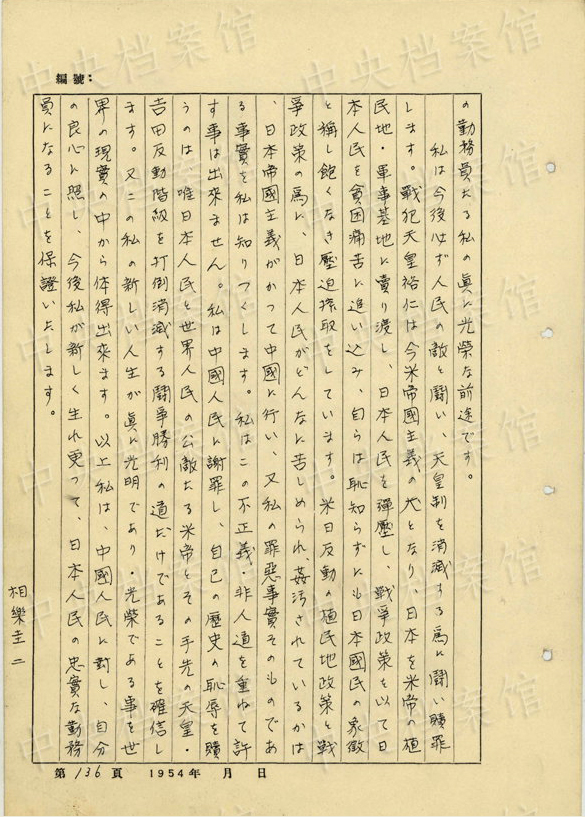 編號：
の勤務員たる私の真に光榮な前途です。
私は今後必ず人民の敵と闘い、天皇制を消滅する為に闘い贖罪
します。戦犯天皇裕仁は今米帝國主義の犬となり、日本を米帝の植
民地・軍事基地に賣り渡し、日本人民を彈壓し、戦爭政策を以て日
本人民を貧困痛苦に追い込み、自らは恥知らずにも日本國民の象徴
と稱し飽くなき壓迫搾取をしています。米日反動の植民地政策と戦
爭政策の為に、日本人民がどんなに苦しめられ姦汚されているかは
、日本帝國主義がかつて中國に行い、又私の罪惡事實そのものであ
る事實を私は知りつくします。私はこの不正義・非人道を重ねて許
す事は出來ません。私は中國人民に謝罪し、自己の歴史の恥辱を贖
うのは唯日本人民と世界人民の公敵たる米帝とその手先の天皇・
吉田反動階級を打倒消滅する闘爭勝利の道だけであることを確信し
ます。又この私の新しい人生が真に光明であり・光榮である事を世
界の現實の中から体得出來ます。以上私は、中國人民に對し、自分
の良心に照し、今後私が新しく生れ更って、日本人民の忠實な勤務
員になることを保證いたします。
相樂圭二
第136頁 1954年 月 日
中央档案馆